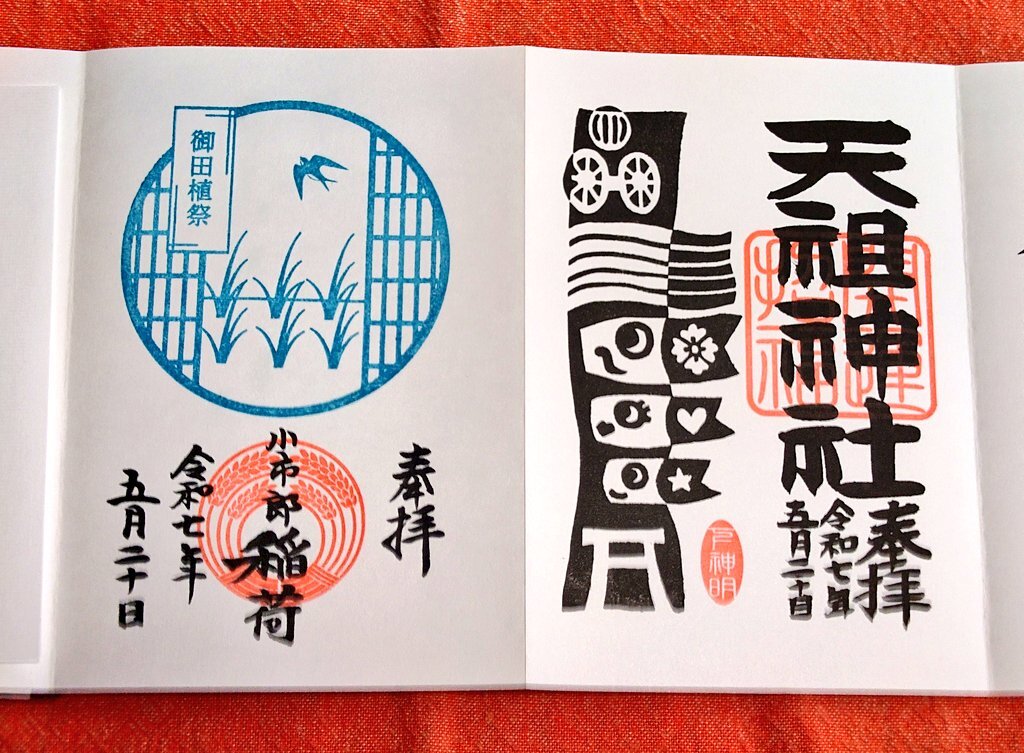 天祖神社
開運
招福
奉拝
令和七年
五月二十日
下神明
御田植祭
奉拝
小市郎稲荷
令和七年
五月二十日